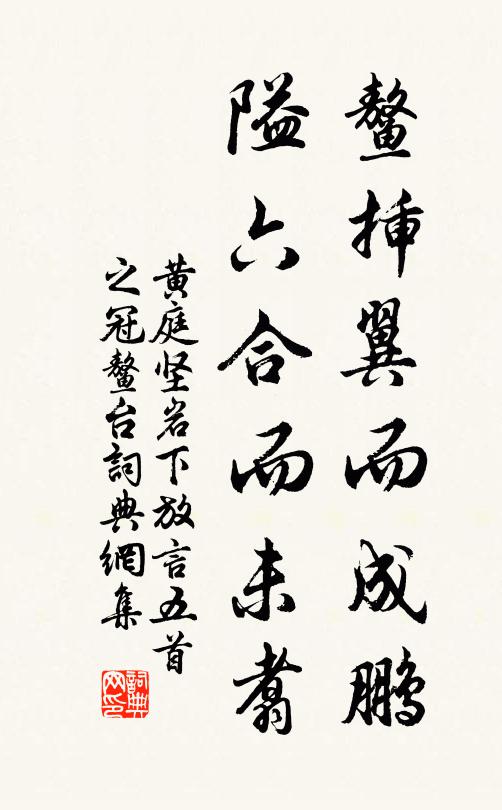 鳌插翼而成鵬
隘六合而未翥
黄庭坚岩下放言五首
之冠鳌台詞典網集
詞典网印